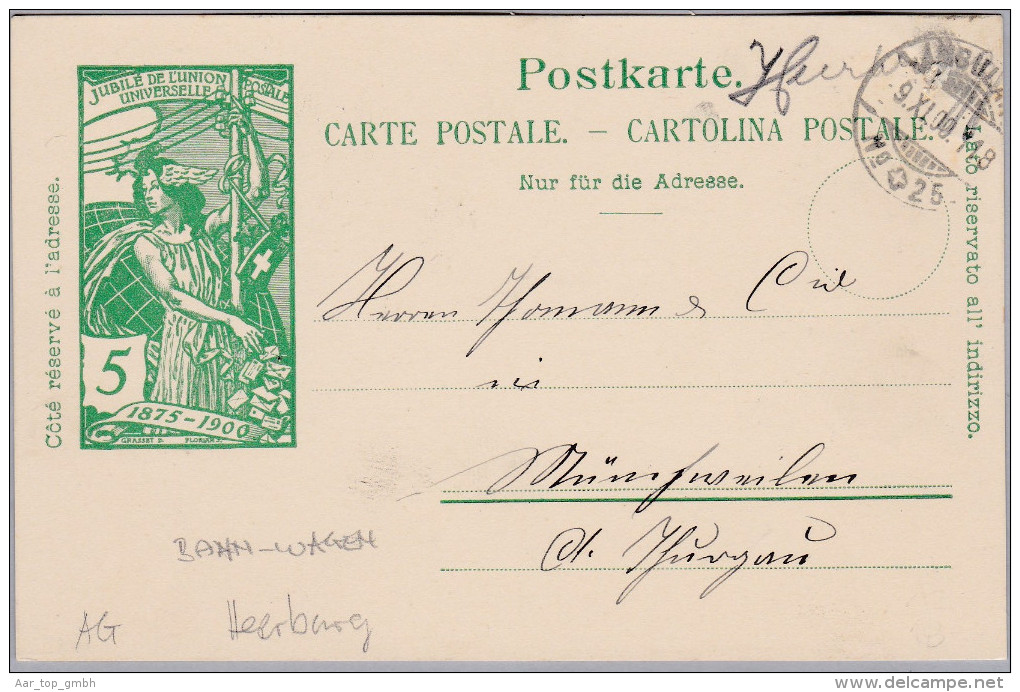 JUBILÉ DE L'UNION
POSTALE
UNIVERSELLE
5
1875-1900
GRASSET D. FLORIAN S.
Côté réservé à l'adresse.
Postkarte.
CARTE POSTALE. — CARTOLINA POSTALE.
Nur für die Adresse.
9.XI.00 748
No 25
Lato riservato all' indirizzo.
Herren Thomann & Cie
in
Münchweilen
Ct. Thurgau
BAHN-WAGEN
AG Heerburg
Aar_top_gmbh
delcampe.net